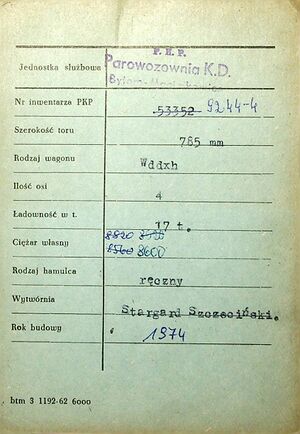 P. K. P.
Jednostka służbowa Parowozownia K.D.
Bytom-
Nr inwentarza PKP 53352 9244-4
Szerokość toru 785 mm
Rodzaj wagonu Wddxh
Ilość osi 4
Ładowność w t. 17 t.
8820
Ciężar własny 8560 8600
Rodzaj hamulca ręczny
Wytwórnia Stargard Szczeciński.
Rok budowy 1974
btm 3 1192-62 6000